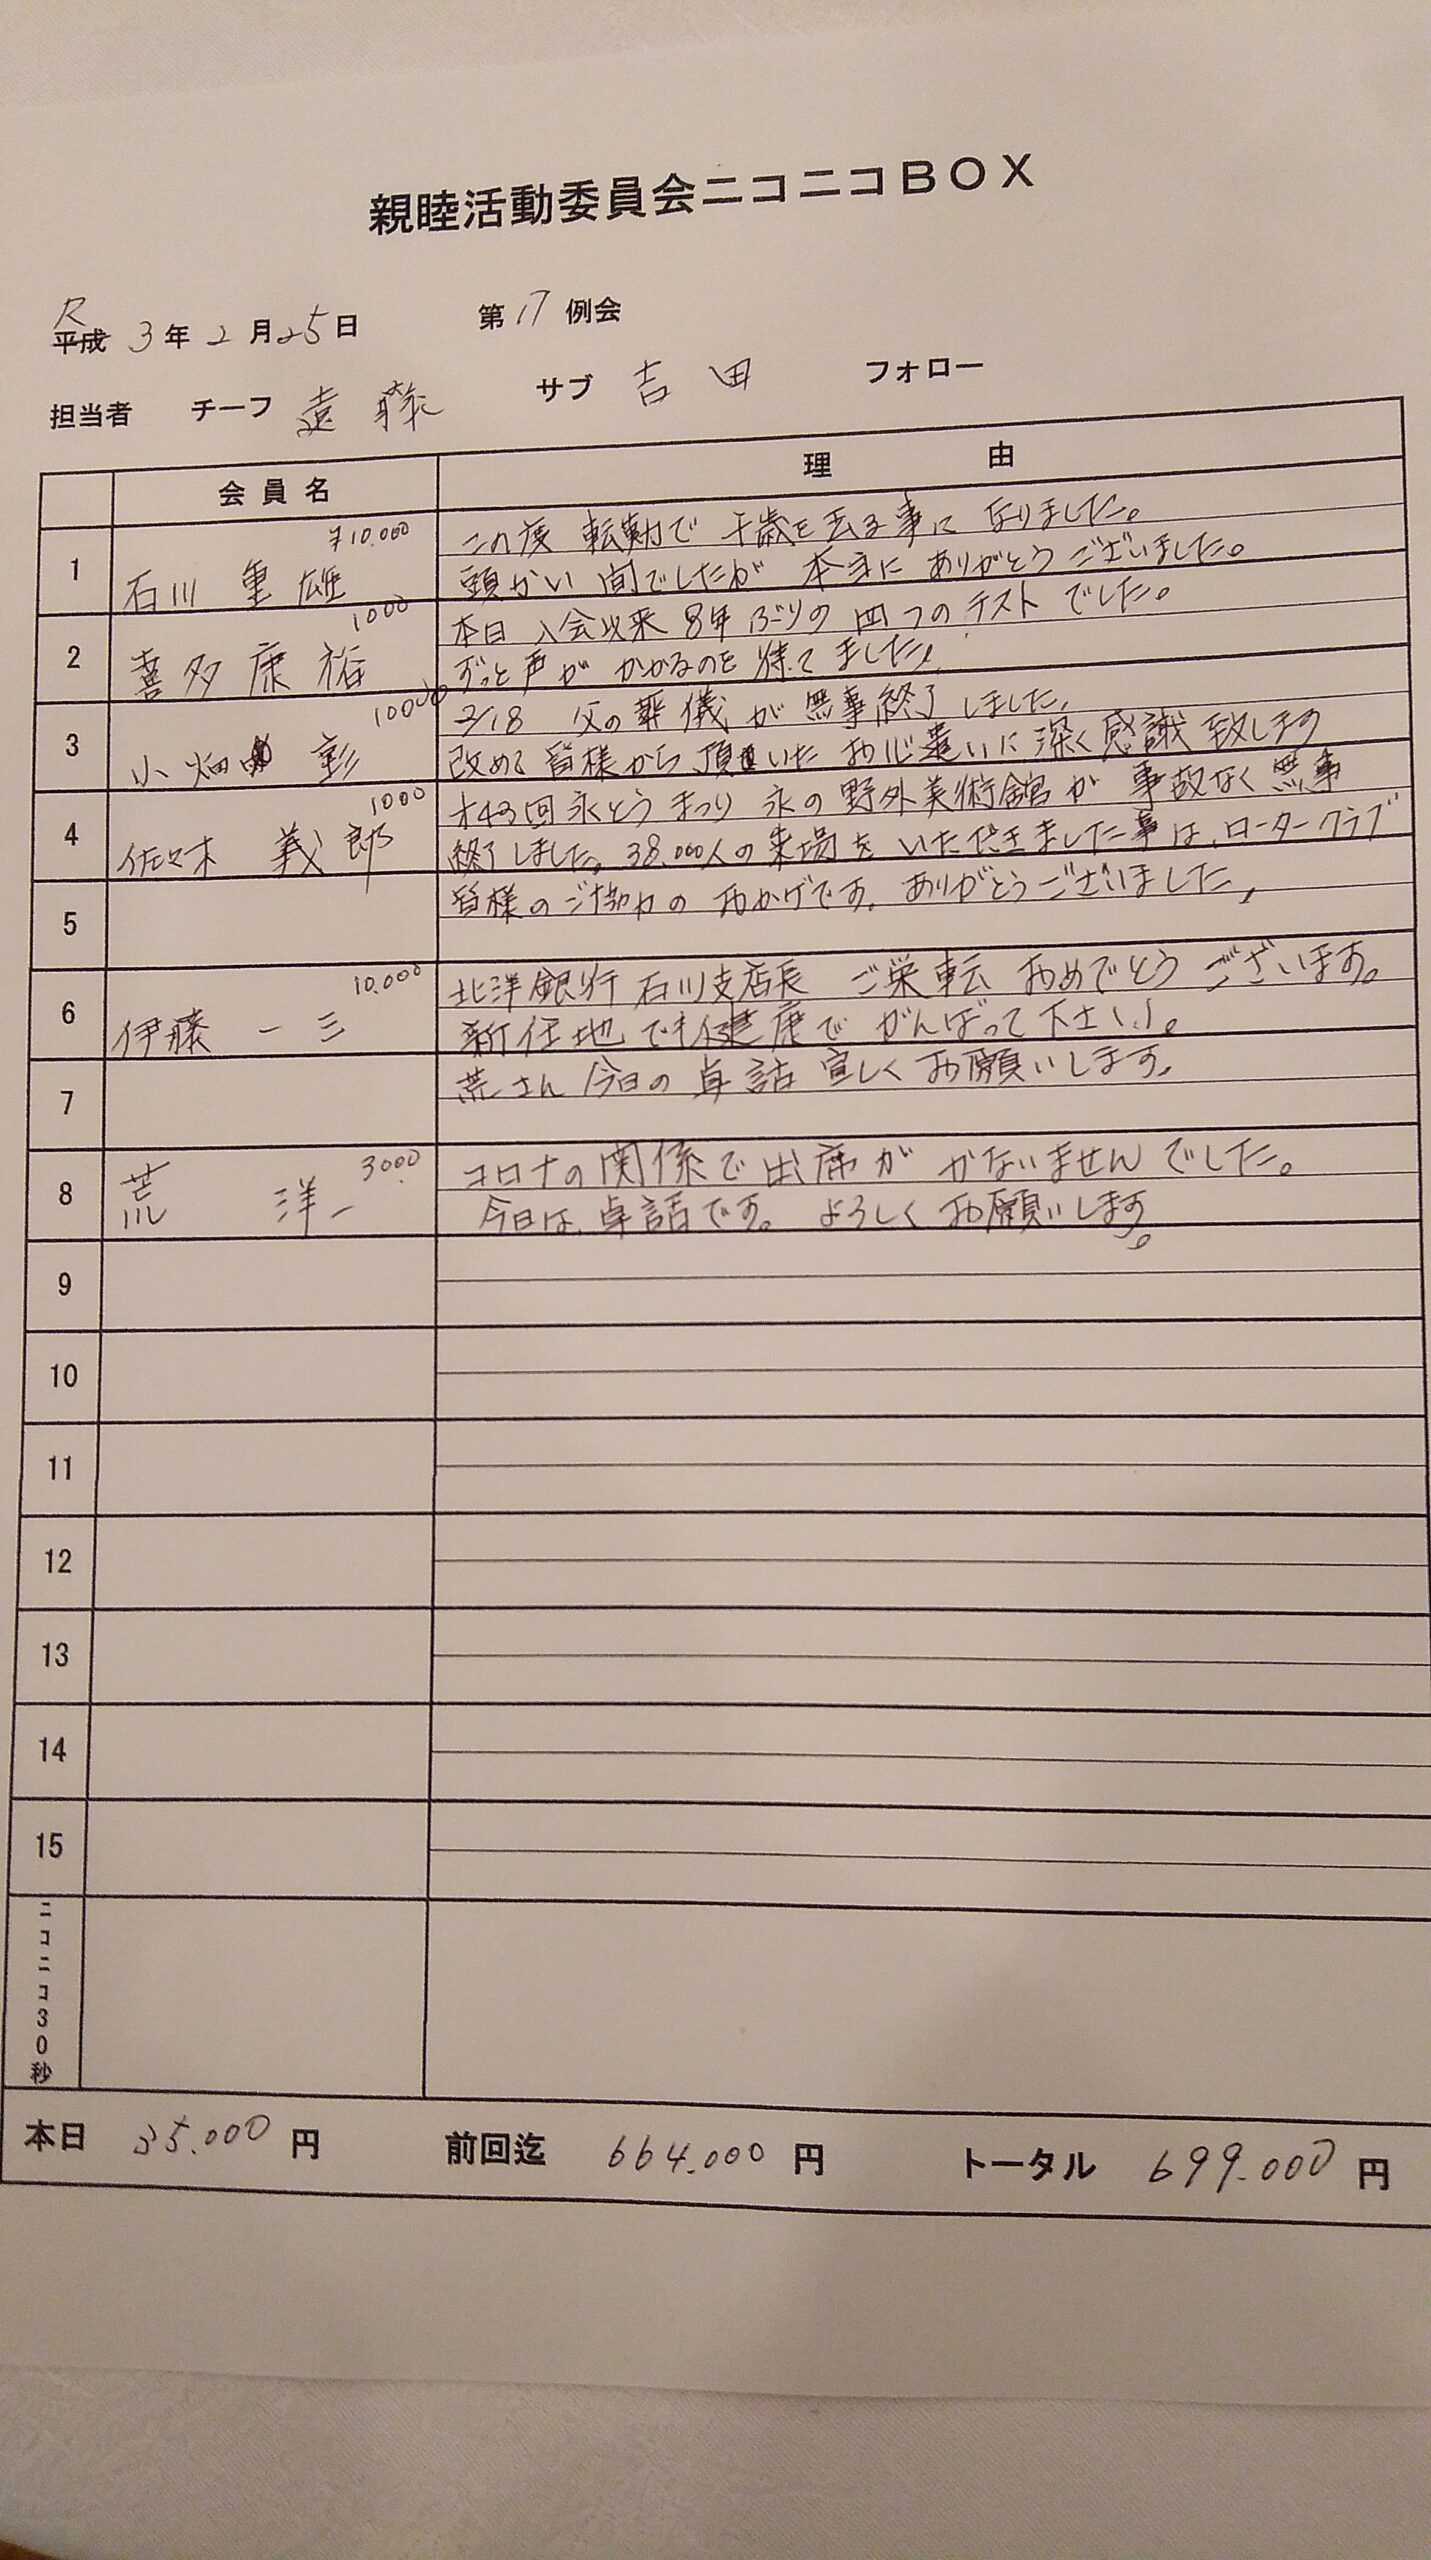 親睦活動委員会ニコニコBOX
R
平成 3年 2月25日 第17例会
担当者 チーフ 遠藤 サブ 吉田 フォロー
会員名 理由
1 石川 重雄 ¥10,000 この度 転勤で 千歳を去る事に なりました。
頭かい 間でしたが 本当に ありがとうございました。
2 喜多 康裕 1000 本日 入会以来 8年ぶりの 四つのテスト でした。
ずっと声が かかるのを 待ってました。
3 小畑 彰 10000 2/18 父の葬儀が無事終了しました。
改めて 皆様から頂いたお心遣いに深く感謝致します
4 佐々木 義郎 1000 才43回 氷とうまつり 氷の野外美術館が 事故なく無事
終了しました。38,000人の来場を いただきました事は、ロータークラブ
5 皆様のご協力の おかげです。ありがとうございました。
6 伊藤 一三 10,000 北洋銀行 石川支店長 ご栄転 おめでとう ございます。
新任地でも健康で がんばって下さい。
7 荒さん 今日の卓話 宜しくお願いします。
8 荒 洋一 3000. コロナの関係で出席が かないませんでした。
今日は、卓話です。よろしくお願いします。
9
10
11
12
13
14
15
ニコニコ30秒
本日 35.000 円 前回迄 664.000 円 トータル 699.000 円